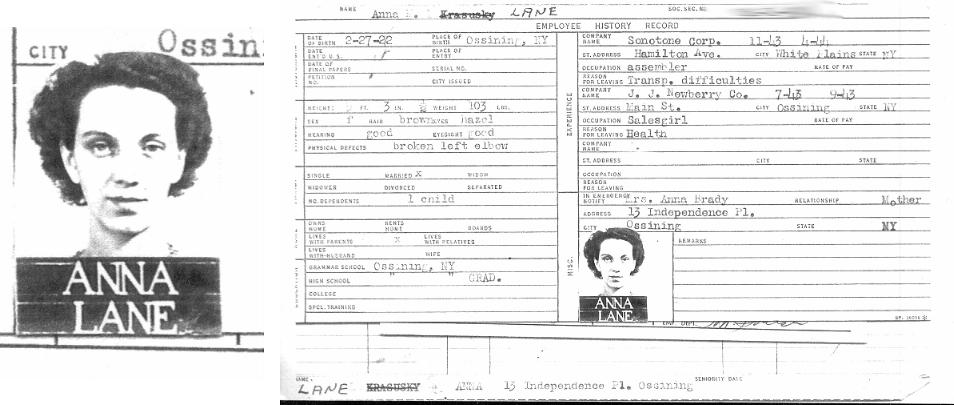 CITY Ossin
ANNA
LANE
NAME Anna Krasusky LANE SOC. SEC. NO.
EMPLOYEE HISTORY RECORD
DATE OF BIRTH 2-27-22 PLACE OF BIRTH Ossining, NY
DATE ENT'D U.S. PLACE OF ENTRY
DATE OF FINAL PAPERS SERIAL NO.
PETITION NO. CITY ISSUED
HEIGHT: FT. 3 IN. ½ WEIGHT 103 LBS.
SEX f HAIR brown EYES hazel
HEARING good EYESIGHT good
PHYSICAL DEFECTS broken left elbow
SINGLE MARRIED X WIDOW
WIDOWER DIVORCED SEPARATED
NO. DEPENDENTS 1 child
OWNS HOME RENTS HOME BOARDS
LIVES WITH PARENTS X LIVES WITH RELATIVES
LIVES WITH HUSBAND WIFE
GRAMMAR SCHOOL Ossining, NY
HIGH SCHOOL " " GRAD.
COLLEGE
SPCL. TRAINING
EXPERIENCE
COMPANY NAME Sonotone Corp. 11-43 4-44
ST. ADDRESS Hamilton Ave. CITY White Plains STATE NY
OCCUPATION assembler RATE OF PAY
REASON FOR LEAVING Transp. difficulties
COMPANY NAME J. J. Newberry Co. 7-43 9-43
ST. ADDRESS Main St. CITY Ossining STATE NY
OCCUPATION Salesgirl RATE OF PAY
REASON FOR LEAVING Health
COMPANY NAME
ST. ADDRESS CITY STATE
OCCUPATION
REASON FOR LEAVING
MISC.
IN EMERGENCY NOTIFY Mrs. Anna Brady RELATIONSHIP Mother
ADDRESS 13 Independence Pl.
CITY Ossining STATE NY
REMARKS
ANNA
LANE
NAME LANE KRASUSKY ANNA 13 Independence Pl. Ossining SENIORITY DATE